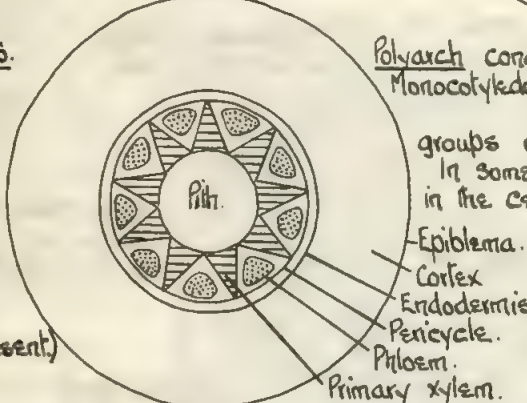 s.
Polyarch con
Monocotyled
groups
In some
in the c
Pith.
Epiblema.
Cortex
Endodermis
Pericycle.
Phloem.
Primary xylem.
esent.)